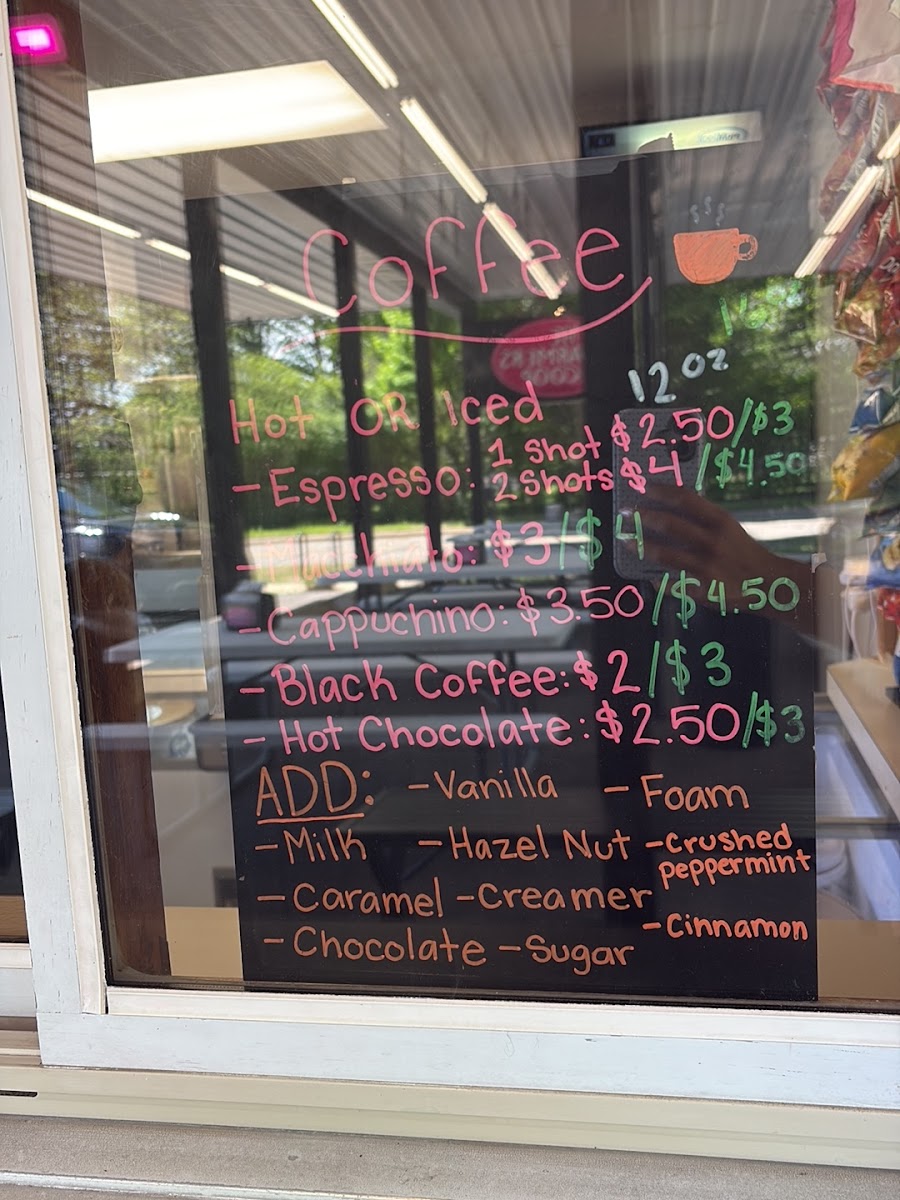 Coffee
12 oz
Hot OR Iced
- Espresso: 1 Shot $2.50/$3
2 Shots $4/$4.50
- Macchiato: $3/$4
- Cappuchino: $3.50/$4.50
- Black Coffee: $2/$3
- Hot Chocolate: $2.50/$3
ADD: - Vanilla - Foam
- Milk - Hazel Nut - Crushed peppermint
- Caramel - Creamer
- Cinnamon
- Chocolate - Sugar